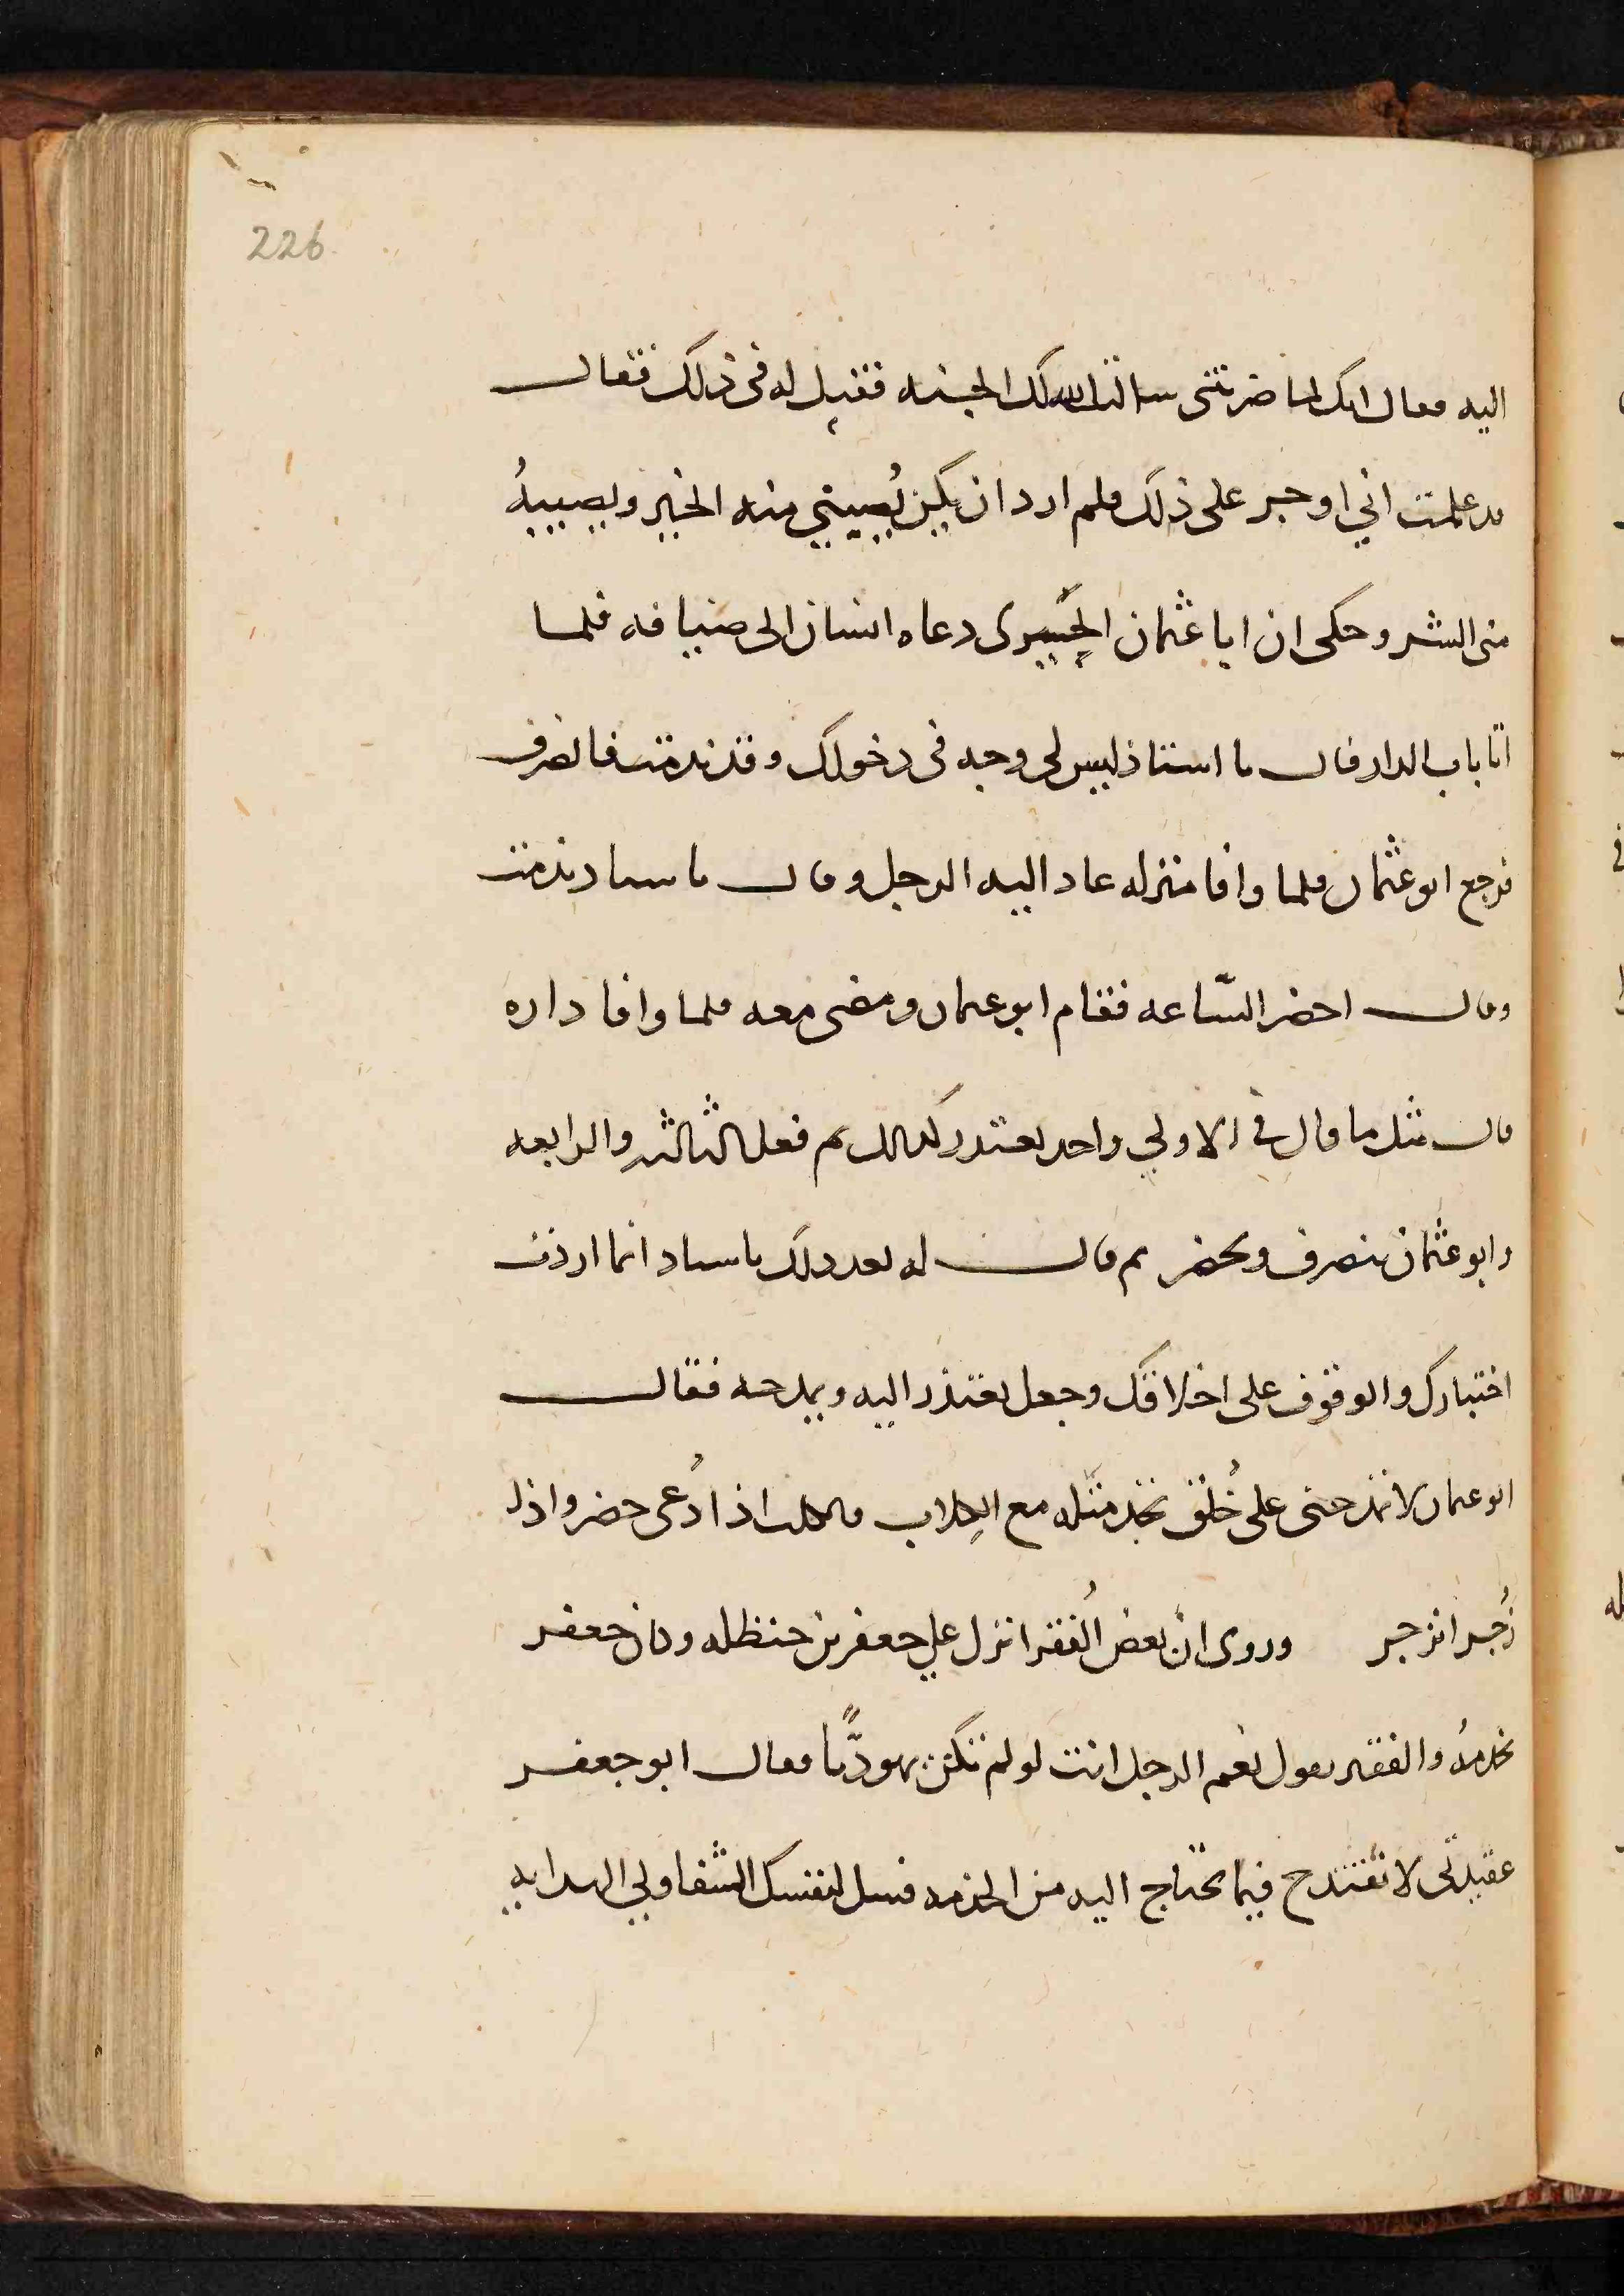 226
اليه فقال انك لما ضربتني سالت الله لك الجنه فقيل له فى ذلك فقال
قد علمت اني اوجر على ذلك فلم ارد ان يكن نُصيبني منه الخير ونصيبهُ
منى الشر وحكى ان ابا عثمان الحَيرى دعاه انسان الى ضيافه فلما
اتا باب الدار قال يا استاذ ليس لى وجه فى دخولك وقد ندمت فانصرف
فرجع ابو عثمان فلما وافا منزله عاد اليه الرجل وقال يا ستاد ندمت
وقال احضر السّاعه فقام ابو عثمان ومضى معه فلما وافا داره
قال مثل ما قال في الاولي واخد يعتدر كذلك ثم فعل الثالثه والرابعه
وابو عثمان ينصرف ويحضر ثم قال له بعد ذلك يا ستاد انما اردت
اختبارك والوقوف على اخلاقك وجعل يعتذر اليه ويمدحه فقال
ابو عثمان لا تمدحنى على خُلق تجد مثله مع الكِلاب فالكلب اذا دُعى حضر واذا
زُجر انزجر وروى انّ بعض الُفقرا نزل علي جعفر بن حنظله وكان جعفر
يخدمهُ والفقير يقول نعم الرجل انت لو لم تكن يهوديًّا فقال ابو جعفر
عقيدتى لا تقتدح فيما تحتاج اليه من الخدمه فسل لنفسك الشفا ولي الهدايه